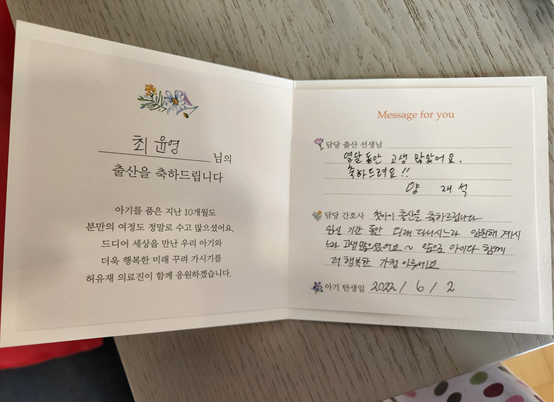 최 윤영 님의
출산을 축하드립니다
아기를 품은 지난 10개월도
분만의 여정도 정말로 수고 많으셨어요.
드디어 세상을 만난 우리 아기와
더욱 행복한 미래 꾸려 가시기를
허유재 의료진이 함께 응원하겠습니다.
Message for you
담당 출산 선생님
열달 동안 고생 많았어요.
축하드려요!!
양 재 석
담당 간호사 첫아이 출산을 축하드립니다
임신 기간 동안 다니시느라 입원해 계시
느라 고생많으셨어요~ 앞으로 아이와 함께
더 행복한 가정 이루세요
아기 탄생일 2022 / 6 / 2